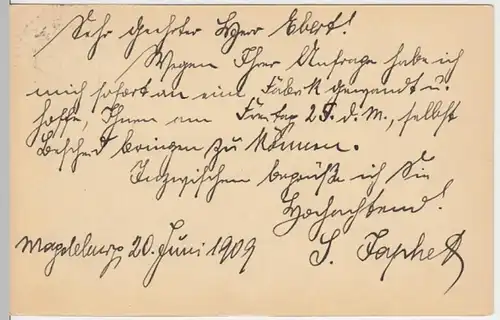 Sehr geehrter Herr Ebert!
Wegen Ihrer Anfrage habe ich
mich sofort an eine Fabrik gewandt u.
hoffe, Ihnen am Freitag 25. d. M., selbst
Bescheid bringen zu können.
Inzwischen begrüße ich Sie
Hochachtend!
Magdeburg 20. Juni 1909 S. Japhet